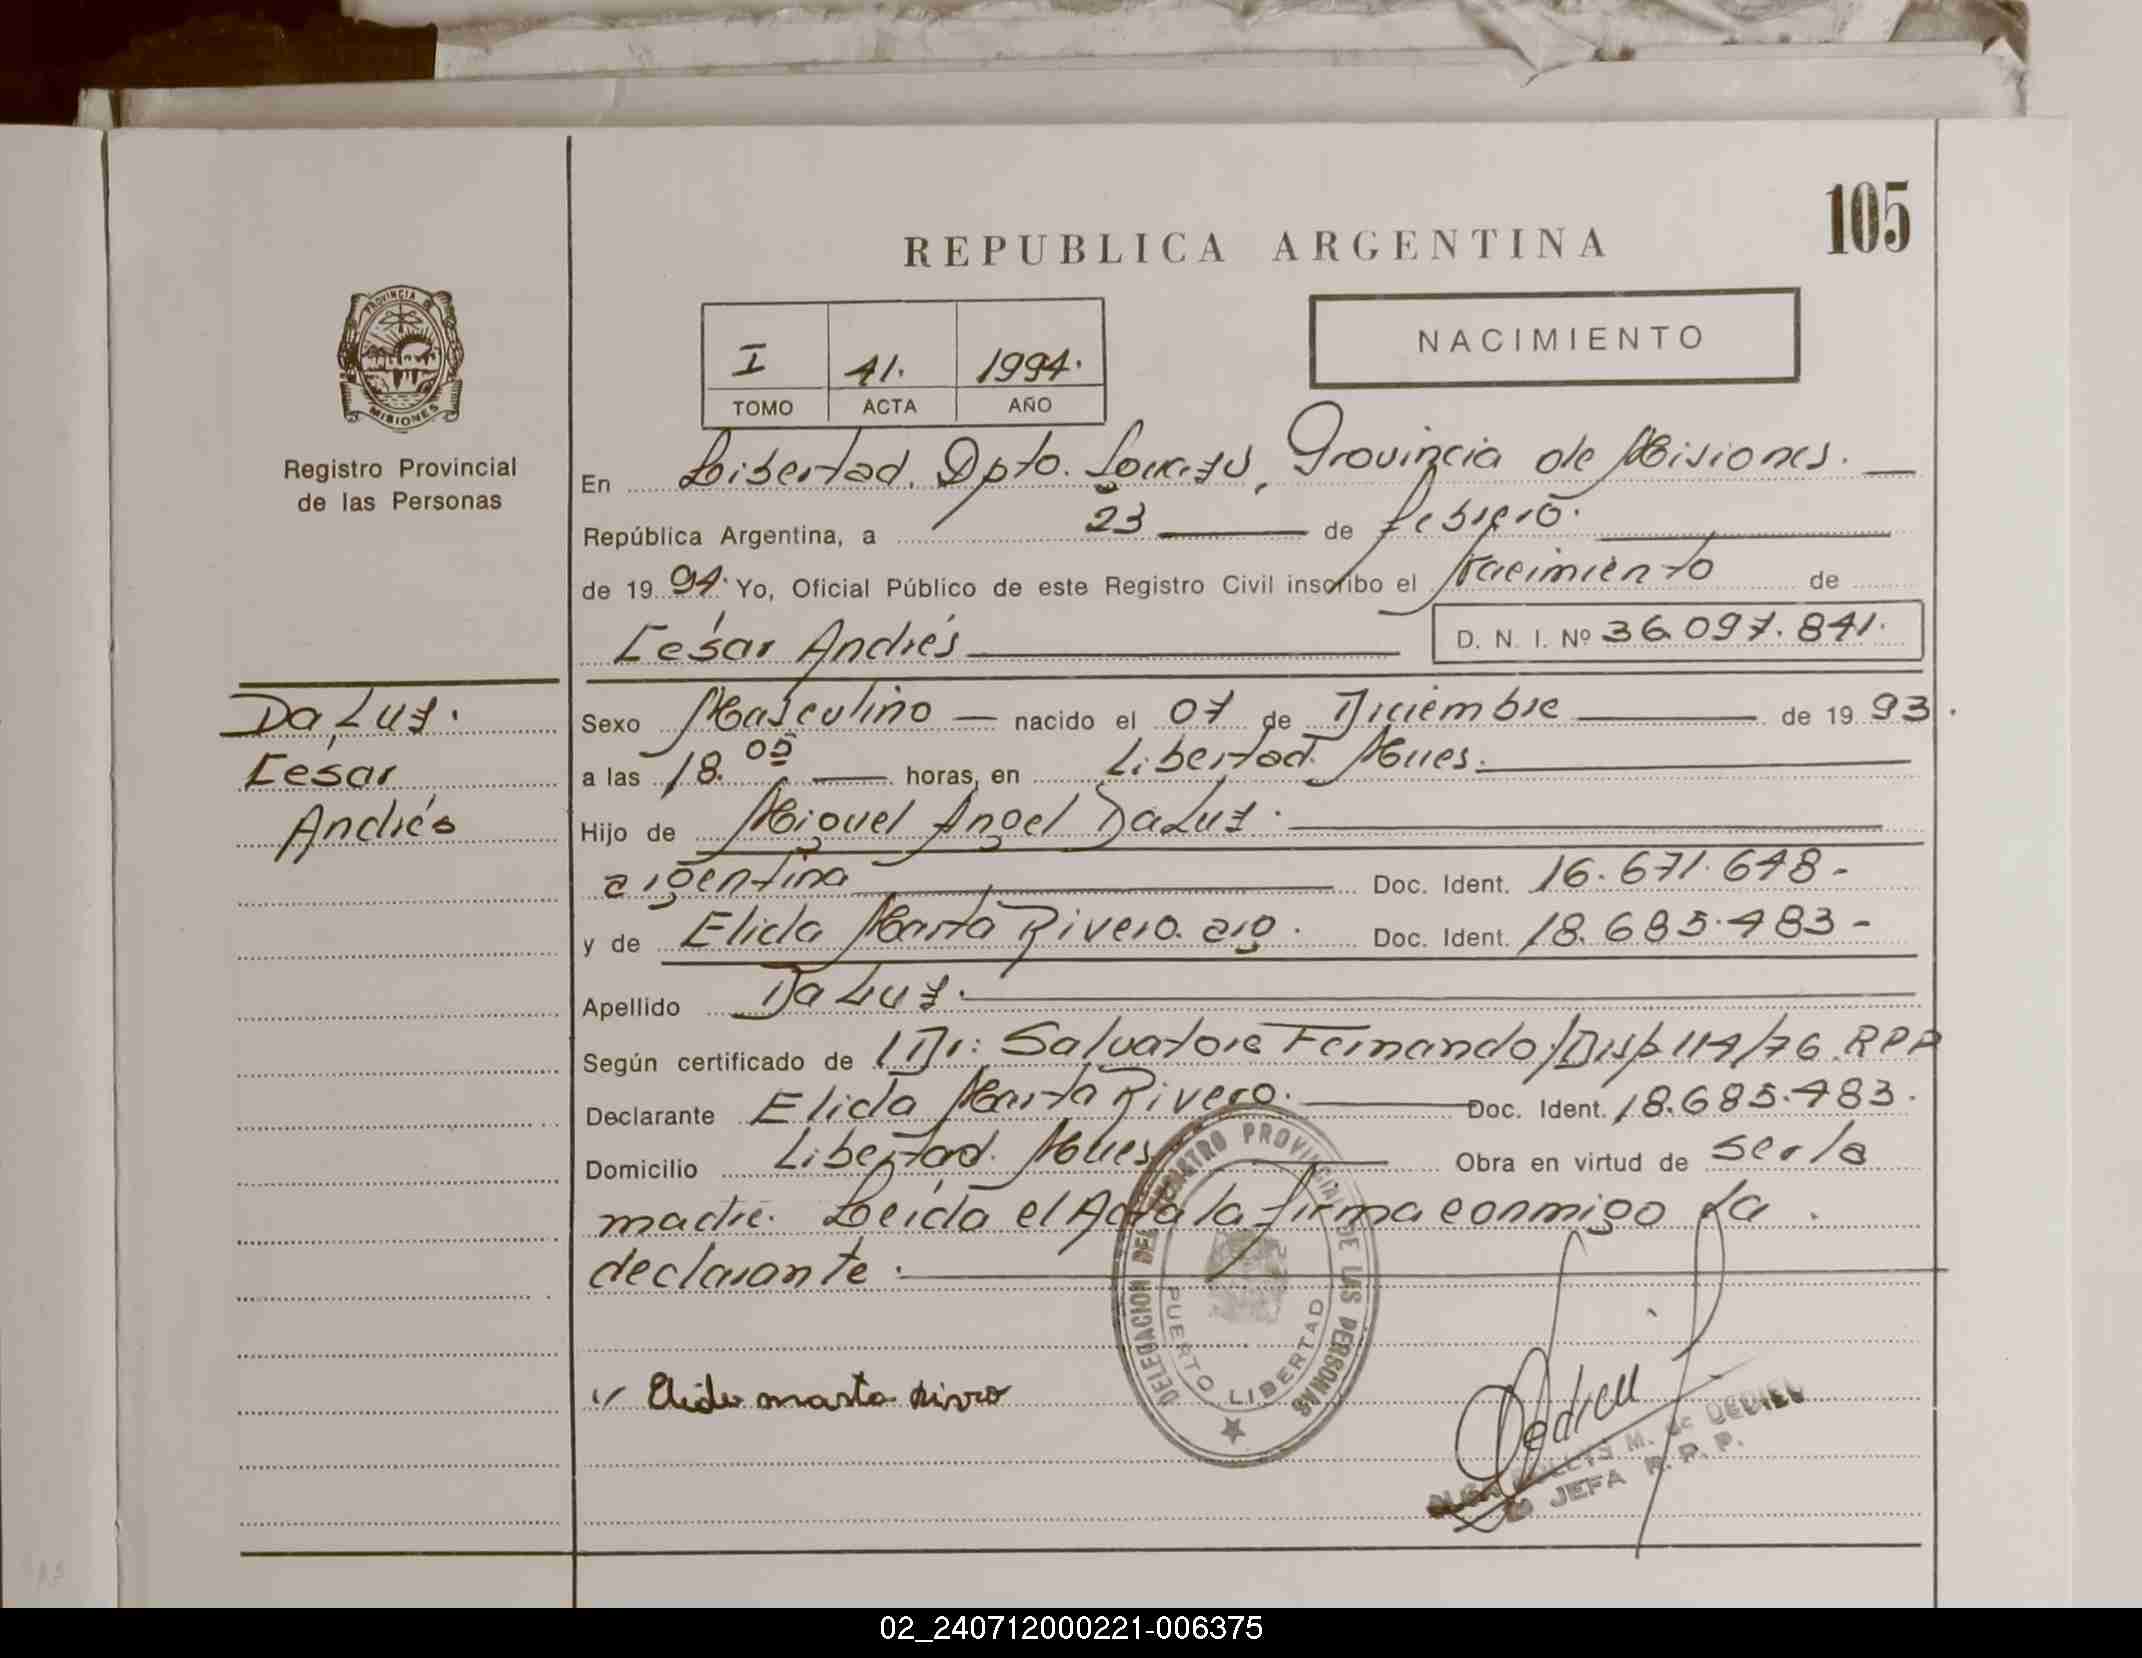 105
REPUBLICA ARGENTINA
PROVINCIA DE
MISIONES
Registro Provincial
de las Personas
I 41. 1994.
TOMO ACTA AÑO
NACIMIENTO
En Libertad, Dpto. Iguazú, Provincia de Misiones.
República Argentina, a 23 de febrero.
de 19 94. Yo, Oficial Público de este Registro Civil inscribo el Nacimiento de
César Andrés D. N. I. Nº 36.097.841.
Da Luz.
César
Andrés
Sexo Masculino nacido el 07 de Diciembre de 19 93.
a las 18.05 horas, en Libertad. Mnes.
Hijo de Miguel Angel Da Luz.
argentina Doc. Ident. 16.671.648-
y de Elida Marta Rivero. arg. Doc. Ident. 18.685.483-
Apellido Da Luz.
Según certificado de Dr: Salvatore Fernando/Disp. 114/76. RPP
Declarante Elida Marta Rivero. Doc. Ident. 18.685.483.
Domicilio Libertad. Mnes Obra en virtud de ser la
madre. Leída el Acta la firma conmigo la
declarante.
DELEGACION DEL REGISTRO PROVINCIAL DE LAS PERSONAS
PUERTO LIBERTAD
Elida marta Rivero
Dedieu
M. de DEDIEU
JEFA R. P. P.
02_240712000221-006375